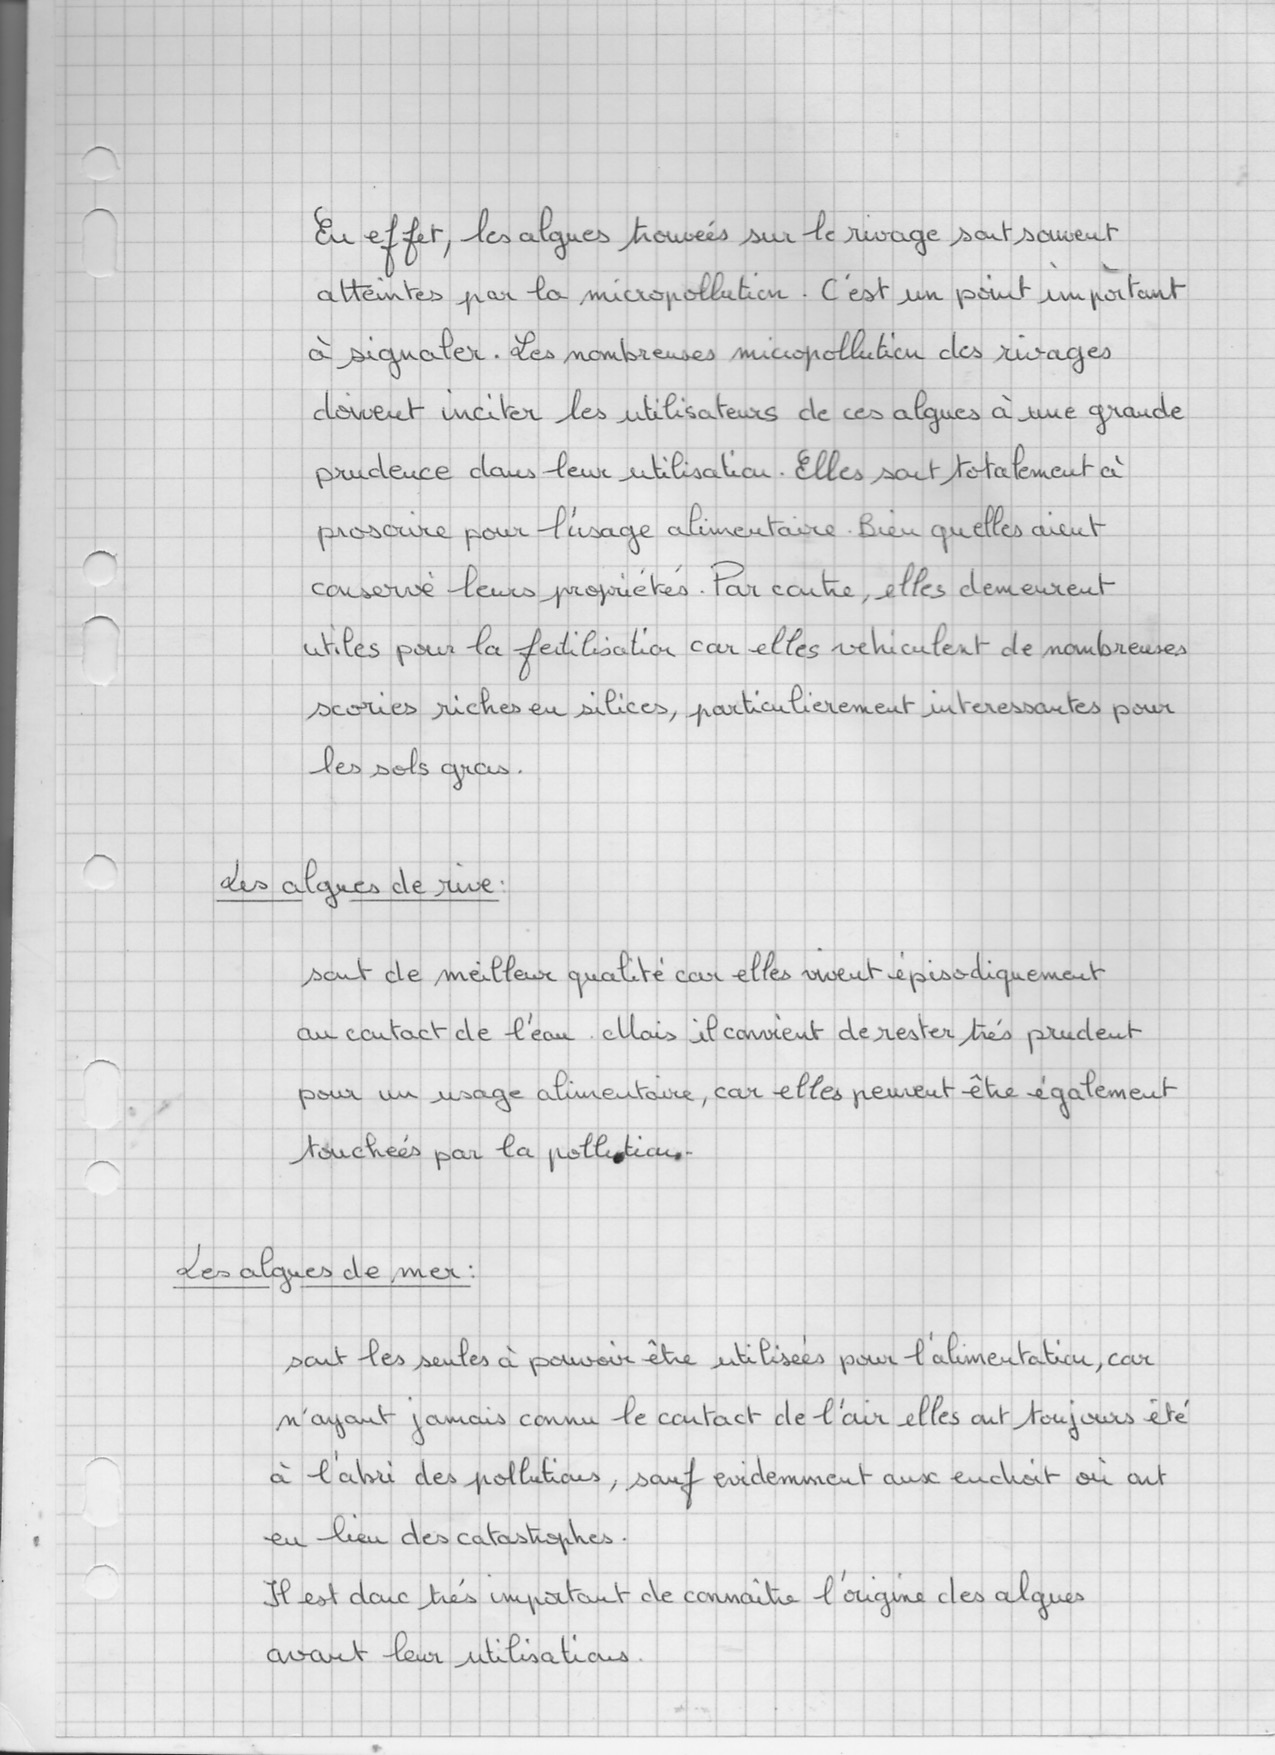 En effet, les algues trouveés sur le rivage sont souvent
atteintes par la micropollution. C'est un point important
à signaler. Les nombreuses micropollution des rivages
doivent inciter les utilisateurs de ces algues à une grande
prudence dans leur utilisation. Elles sont totalement à
proscrire pour l'usage alimentaire. Bien qu'elles aient
conservé leurs propriétés. Par contre, elles demeurent
utiles pour la fertilisation car elles vehiculent de nombreuses
scories riches en silices, particulierement interessantes pour
les sols gras.
Les algues de rive:
sont de meilleur qualité car elles vivent épisodiquement
au contact de l'eau. Mais il convient de rester trés prudent
pour un usage alimentaire, car elles peuvent être également
toucheés par la pollution.
Les algues de mer:
sont les seules à pouvoir être utiliseés pour l'alimentation, car
n'ayant jamais connu le contact de l'air elles ont toujours été
à l'abri des pollutions, sauf evidemment aux endroit où ont
eu lieu des catastrophes.
Il est donc trés important de connaître l'origine des algues
avant leur utilisations.